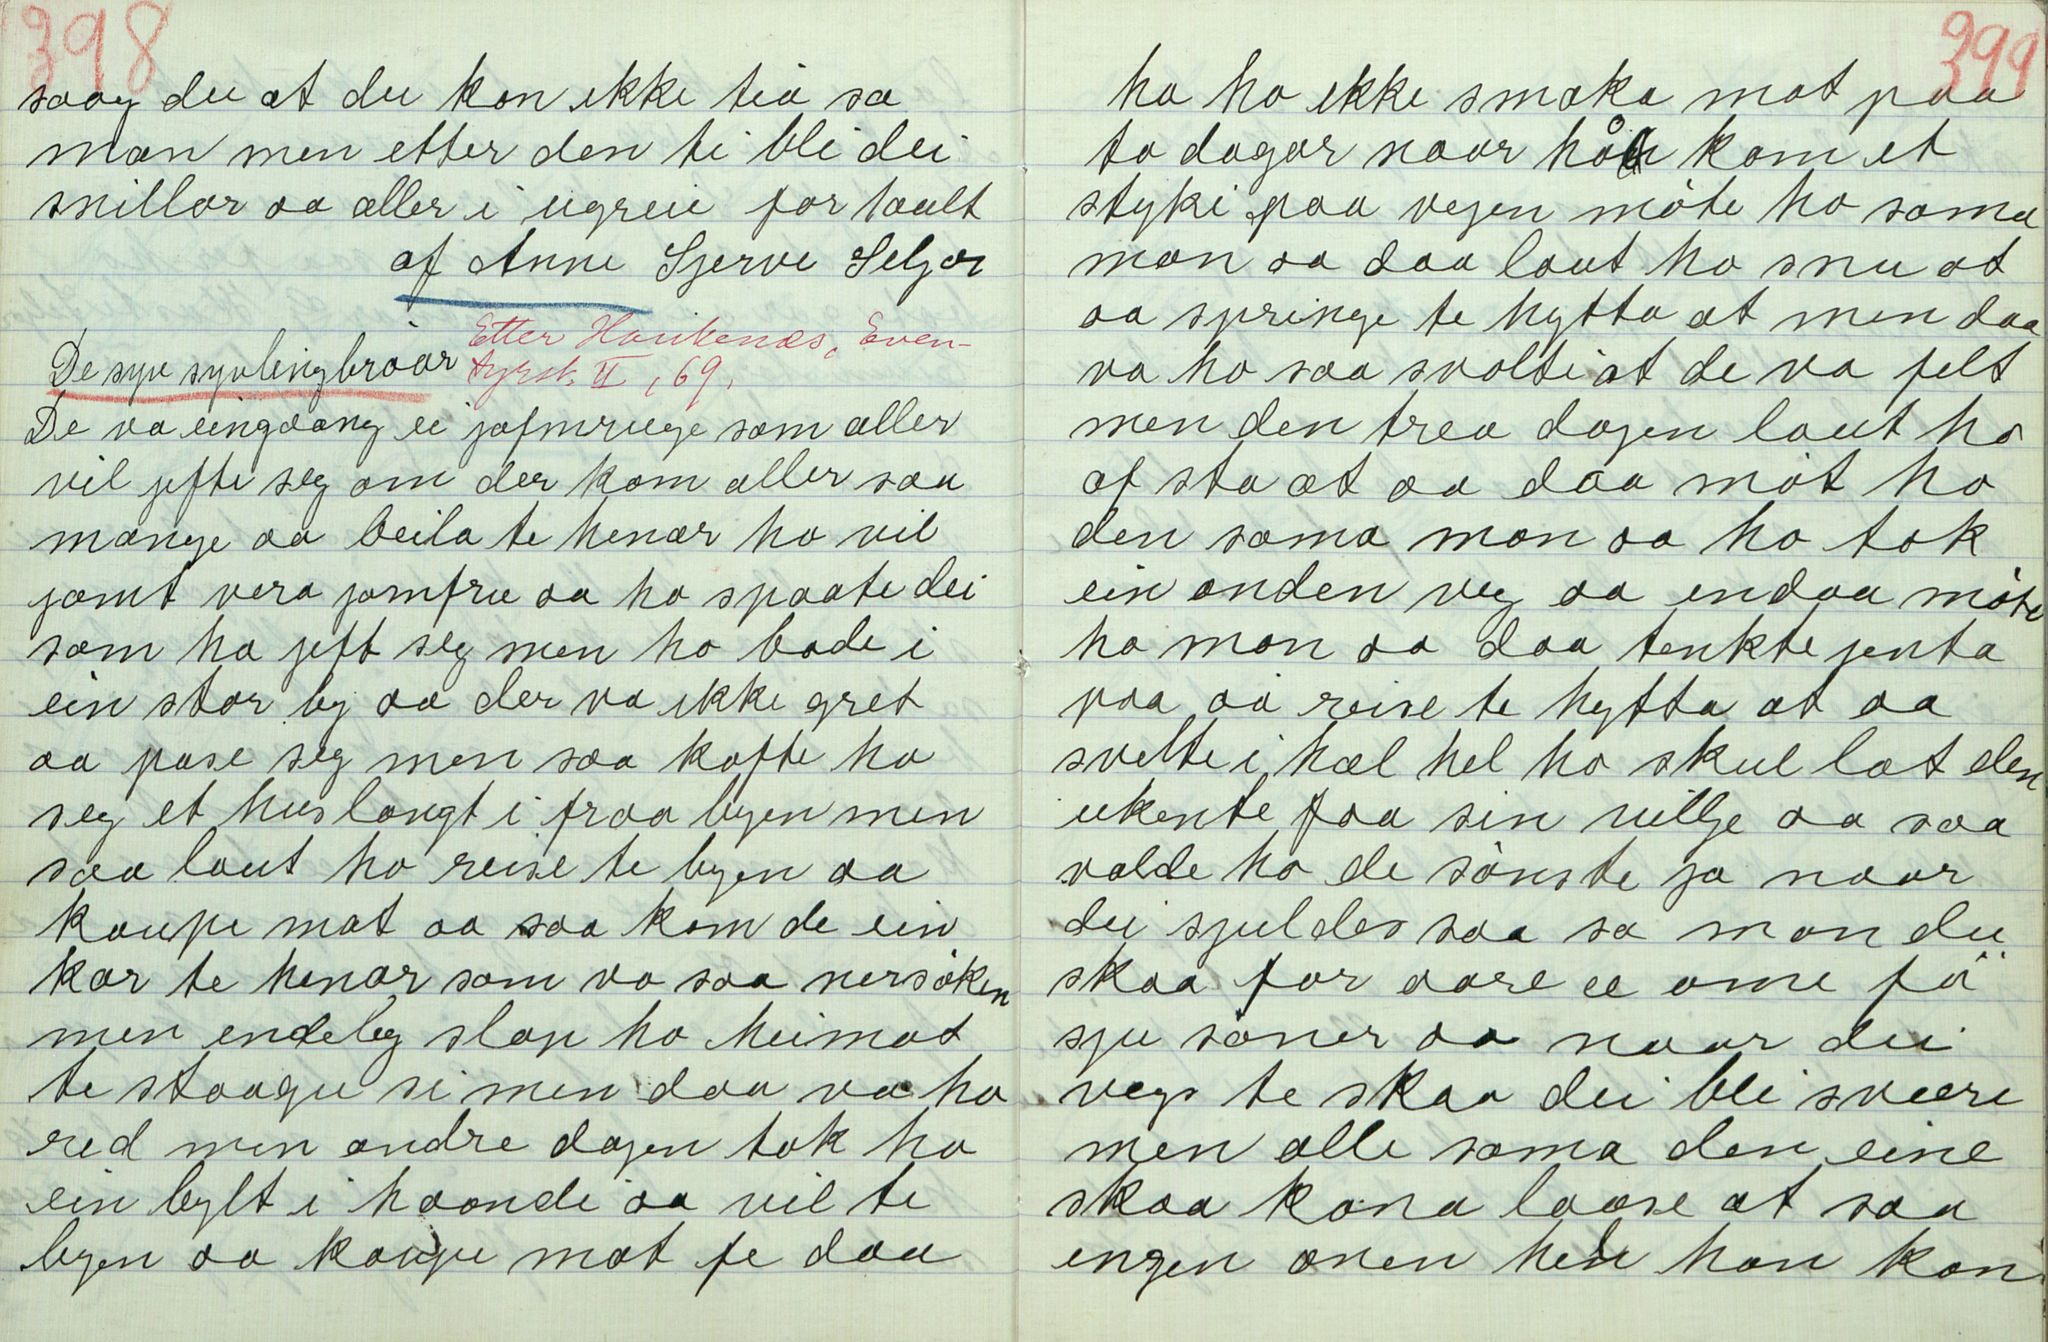 398
saag du at du kan ikke tia sa
man men etter den ti bli dei
snillar aa aller i ugreie fortault
af Anne Skjerve Seljar
De syv syvlingbröar
Etter Haukenæs, Even-
tyrsk. II, 69.
De va eingaang ei jafmruge som aller
vil jefte seg om der kom aller saa
mange aa beila te henar ho vil
jamt vera jomfru aa ho spaate dei
som ha jeft seg men ho bode i
ein stor by aa der va ikke gret
aa pase seg men saa kofte ho
seg et hus langt i fraa byen men
saa laut ho reise te byen aa
kaupe mat aa saa kom de ein
kar te henar som va saa nersöken
men endeleg slap ho heimat
te staagu si men daa va ho
red men andre dagen tok ho
ein bylt i haandi aa vil te
byen aa kaupe mat fe daa
399
ha ho ikke smaka mat paa
to dagar naar hå kom et
styki paa vegen möte ho sama
man aa daa laut ho snu at
aa springe te hytta at men daa
va ho saa svolti at de va felt
men den trea dagen laut ho
af sta at aa daa möt ho
den sama man aa ho tok
ein anden veg aa endaa möte
ho man aa daa tenkte jenta
paa aa reise te hytta at aa
svelte i hæl hel ho skul lat den
ukente faa sin villje aa saa
valde ho de sönste ja naar
dei sjuldes saa sa man du
skaa for aare ee ome få
sju söner aa naar dei
vegs te skaa dei bli svære
men alle sama den eine
skaa kana laase at saa
engen anen heil han kan